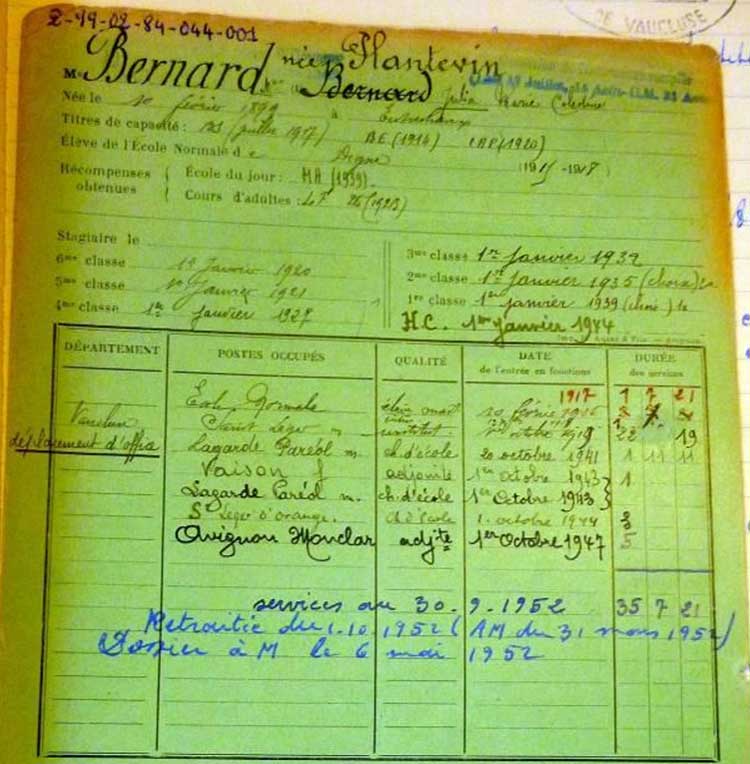 2-99-02-84-044-001
DE VAUCLUSE
Bernard née Plantevin
M Bernard Julia Marie
Née le 10 février 1899 à Entrechaux
Titres de capacité : BS (juillet 1917) BE (1914) CAP (1920)
Élève de l'École Normale de Digne (1915-1918)
Récompenses obtenues
École du jour : MH (1939)
Cours d'adultes : LF (1923)
Stagiaire le
6me classe 1er Janvier 1920
5me classe 1er Janvier 1921
4me classe 1er janvier 1927
3me classe 1er Janvier 1932
2me classe 1er Janvier 1935 (choix)
1re classe 1er janvier 1939 (choix)
H.C. 1er Janvier 1944
DÉPARTEMENT POSTES OCCUPÉS QUALITÉ DATE de l'entrée en fonctions DURÉE des services
1917 1 7 21
École Normale élève 10 février
Vaucluse Saint Léger m 1919 22 19
déplacement d'office Lagarde Paréol m. ch. d'école 20 octobre 1941 1 11 11
Vaison f adjointe 1er Octobre 1943 1
Lagarde Paréol m. ch. d'école 1er Octobre 1943
St Léger d'Orange. ch d'école 1. octobre 1944 3
Avignon Monclar adjte 1er Octobre 1947 5
services au 30. 9. 1952 35 7 21
Retraitée du 1.10.1952 (AM du 31 mars 1952)
Dossier à M le 6 mai 1952